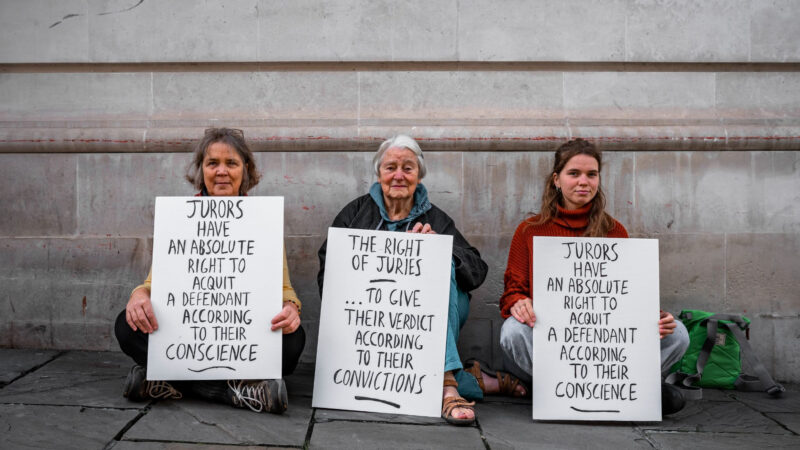 JURORS
HAVE
AN ABSOLUTE
RIGHT TO
ACQUIT
A DEFENDANT
ACCORDING
TO THEIR
CONSCIENCE
THE RIGHT
OF JURIES
...TO GIVE
THEIR VERDICT
ACCORDING
TO THEIR
CONVICTIONS
JURORS
HAVE
AN ABSOLUTE
RIGHT TO
ACQUIT
A DEFENDANT
ACCORDING
TO THEIR
CONSCIENCE